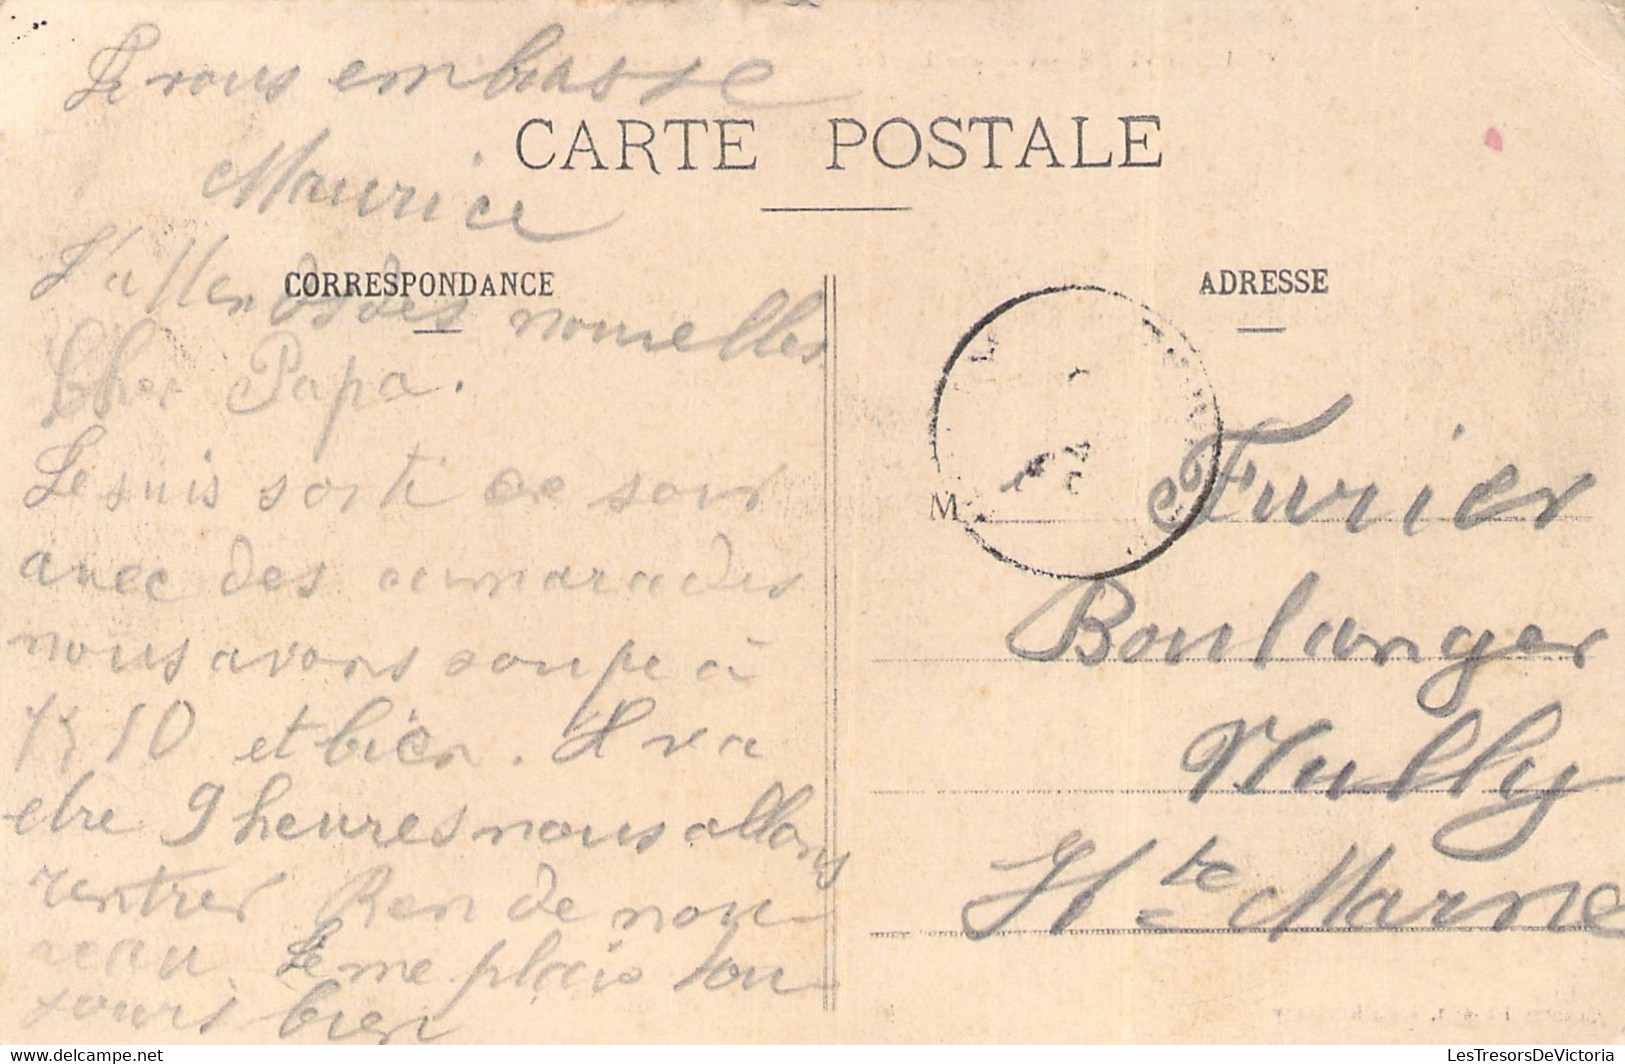 Je vous embrasse
CARTE POSTALE
Maurice
J'attends des nouvelles
CORRESPONDANCE
ADRESSE
Cher Papa.
Je suis sorti ce soir
avec des camarades
nous avons soupe à
10 et bien. Il va
etre 9 heures nous allons
rentrer Rien de nou-
veau. Je me plais tou-
jours bien
M
24
Furier
Boulanger
Nully
Hte Marne
LesTresorsDeVictoria